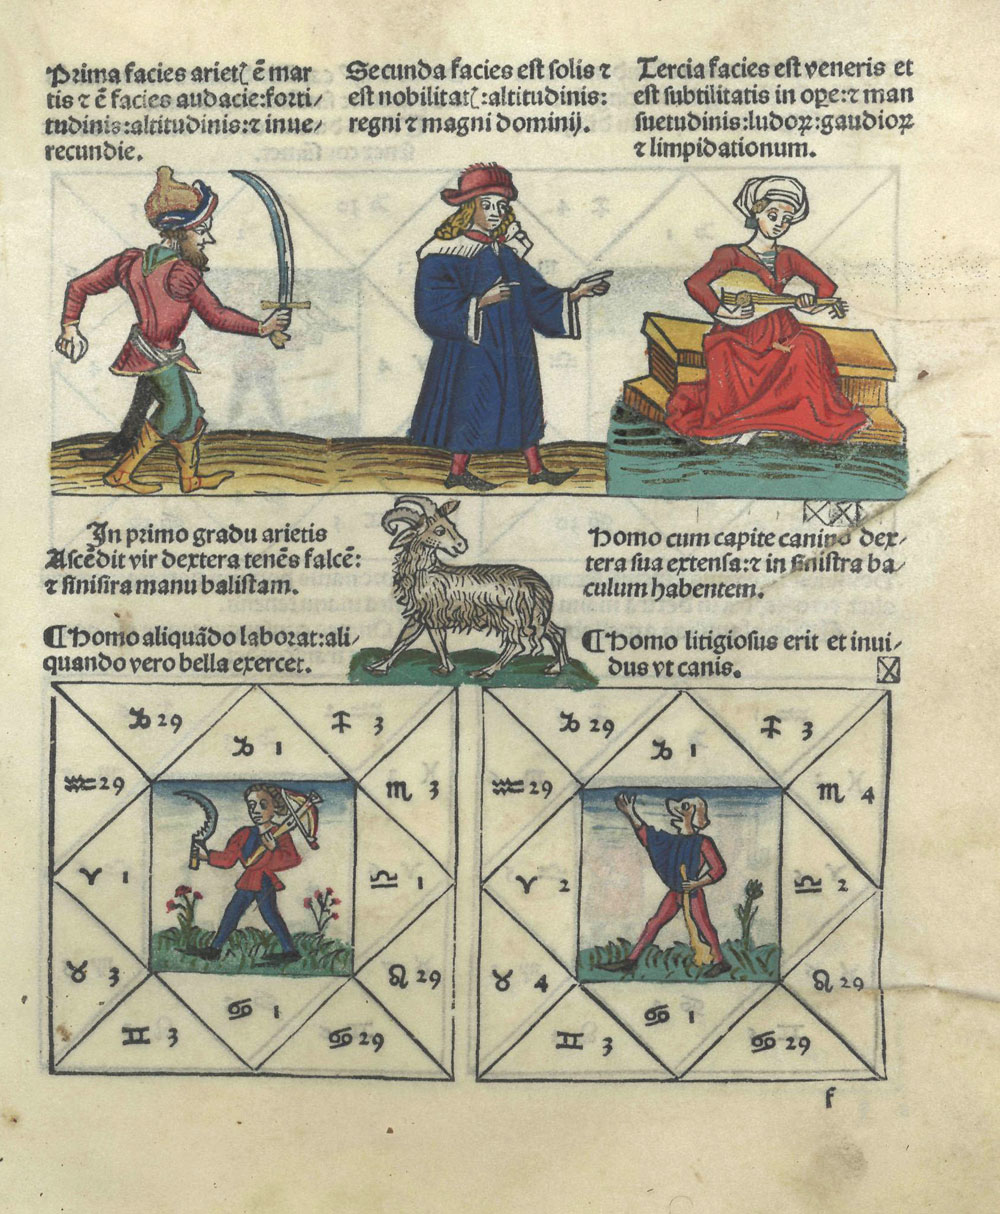 Prima facies arietꝭ ē mar
tis ⁊ ē facies audacie:forti/
tudinis:altitudinis:⁊ inue/
recundie.
Secunda facies est solis ⁊
est nobilitatꝭ:altitudinis:
regni ⁊ magni dominij.
Tercia facies est veneris et
est subtilitatis in oꝑe:⁊ man
suetudinis:ludoꝝ:gaudioꝝ
⁊ limpidationum.
In primo gradu arietis
Ascēdit vir dextera tenēs falcē:
⁊ sinisira manu balistam.
¶Homo aliquādo laborat:ali/
quando vero bella exercet.
Homo cum capite canino dex/
tera sua extensa:⁊ in sinistra ba/
culum habentem.
¶Homo litigiosus erit et inui/
dus vt canis.
♑ 29
♑ 1
♐ 3
♒ 29
♏ 3
♈ 1
♎ 1
♉ 3
♌ 29
♊ 3
♋ 1
♋ 29
♑ 29
♑ 1
♐ 3
♒ 29
♏ 4
♈ 2
♎ 2
♉ 4
♌ 29
♊ 3
♋ 1
♋ 29
f